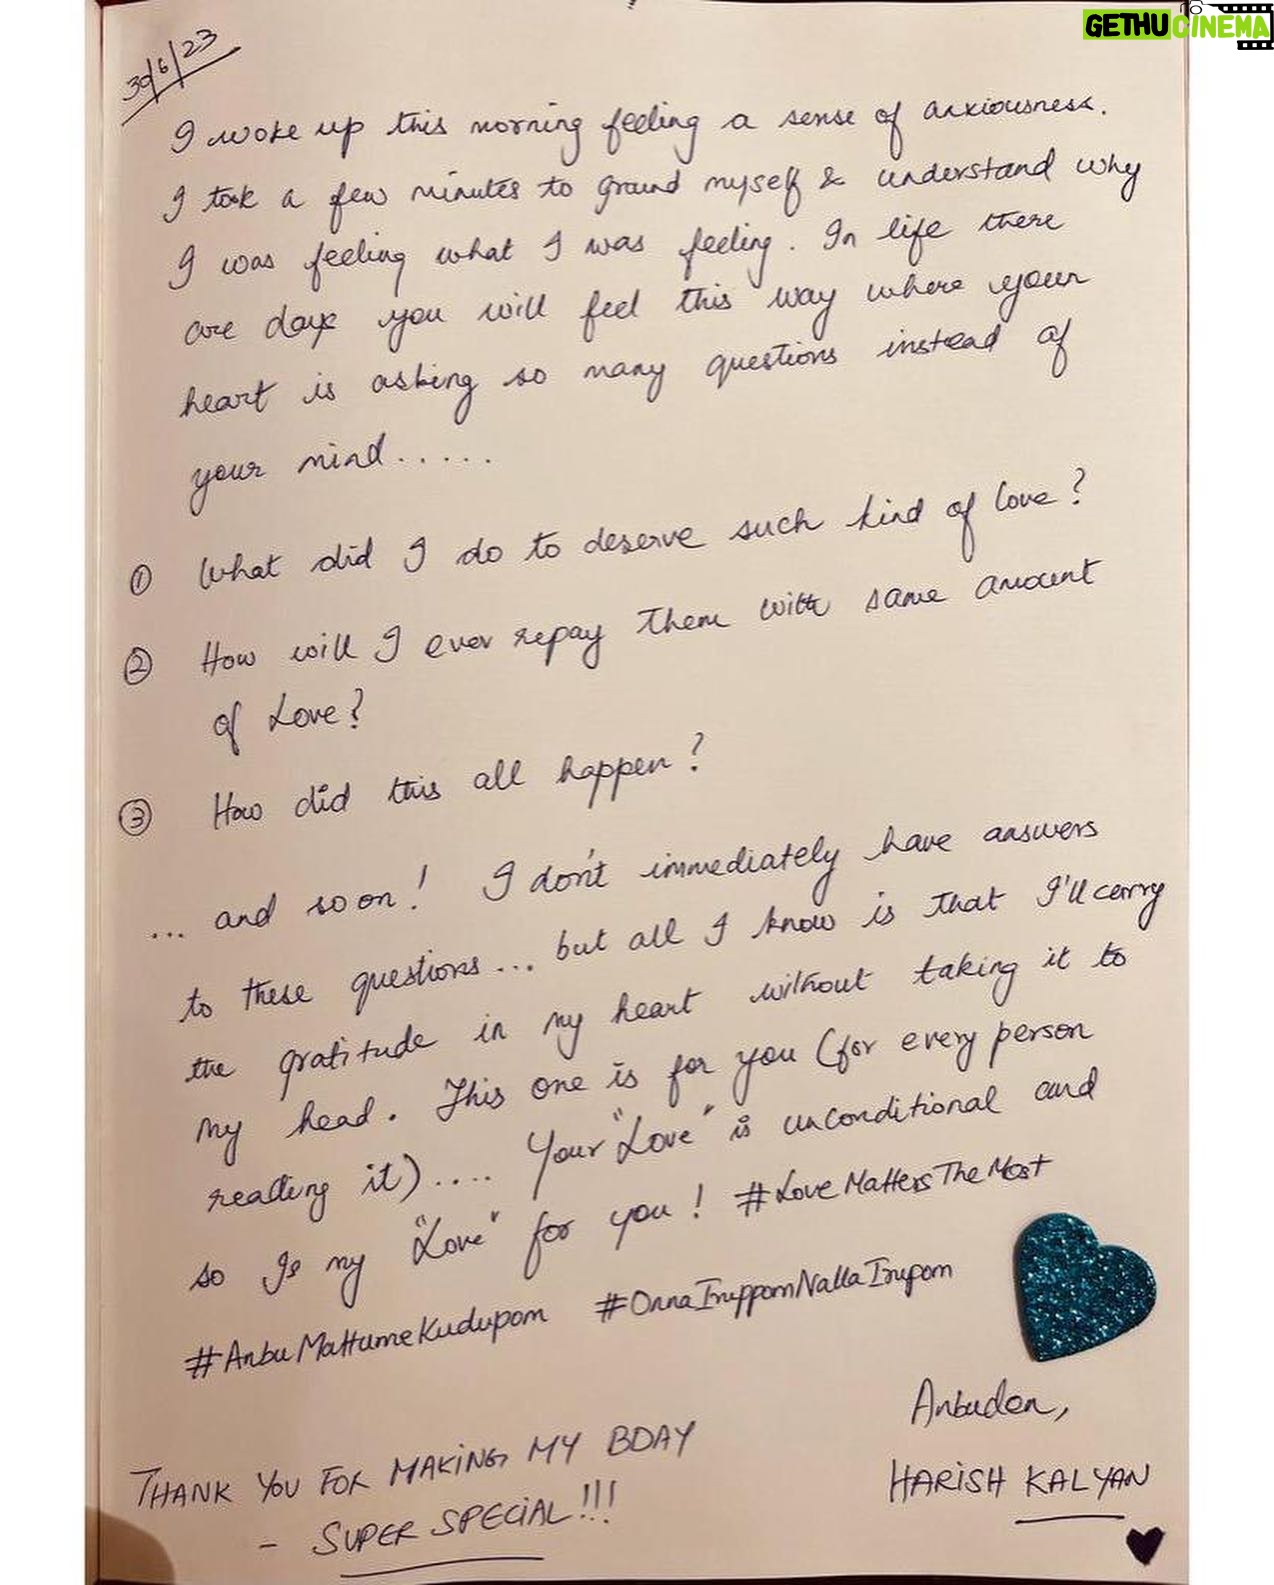 GETHU CINEMA
30/6/23
I woke up this morning feeling a sense of anxiousness.
I took a few minutes to ground myself & understand why
I was feeling what I was feeling. In life there
are days you will feel this way where your
heart is asking so many questions instead of
your mind.....
① What did I do to deserve such kind of love?
② How will I ever repay them with same amount
of Love?
③ How did this all happen?
... and so on! I don't immediately have answers
to these questions... but all I know is that I'll carry
the gratitude in my heart without taking it to
my head. This one is for you (for every person
reading it).... Your "Love" is unconditional and
so Is my "Love" for you! #LoveMattersTheMost
#AnbuMattumeKudupom #OnnaIruppomNallaIrupom
Anbudan,
HARISH KALYAN
THANK YOU FOR MAKING MY BDAY
- SUPER SPECIAL!!!